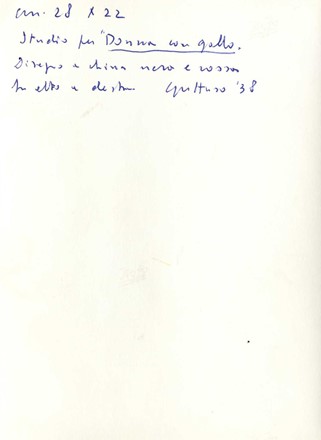 cm. 28 x 22
Studio per "Donna con gallo.
Disegno a china nera e rossa
In alto a destra Guttuso '38